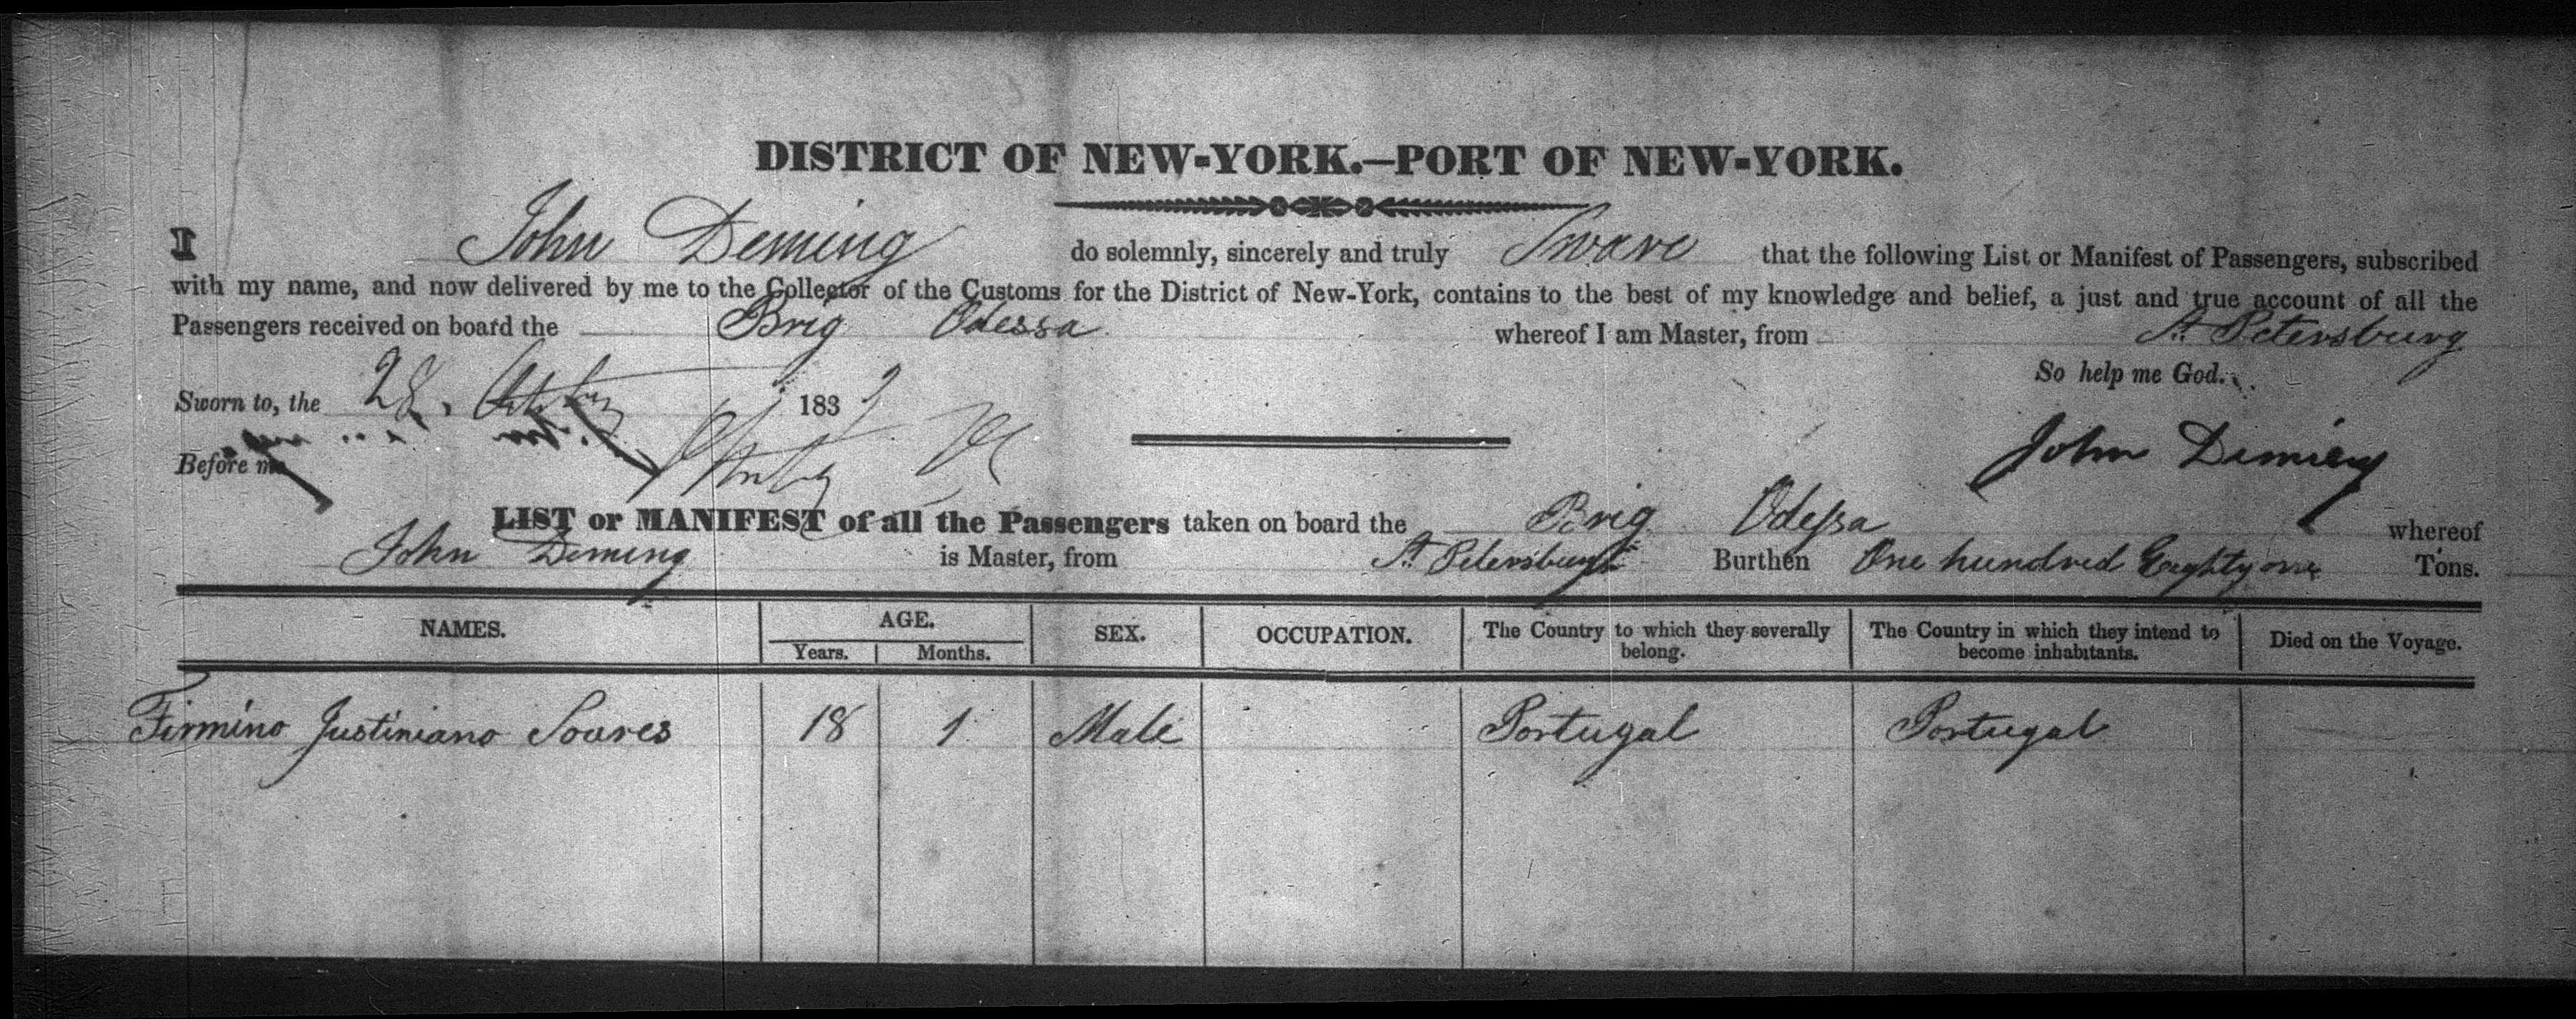 DISTRICT OF NEW-YORK.—PORT OF NEW-YORK.
I John Deming do solemnly, sincerely and truly Swave that the following List or Manifest of Passengers, subscribed
with my name, and now delivered by me to the Collector of the Customs for the District of New-York, contains to the best of my knowledge and belief, a just and true account of all the
Passengers received on board the Brig Odessa whereof I am Master, from St. Petersburg
So help me God.
Sworn to, the 28. 183
Before me John Deming
LIST or MANIFEST of all the Passengers taken on board the Brig Odessa whereof
John Deming is Master, from St. Petersburg Burthen One hundred Eighty one Tons.
NAMES. AGE. SEX. OCCUPATION. The Country to which they severally belong. The Country in which they intend to become inhabitants. Died on the Voyage.
Years. Months.
Firmino Justiniano Soares 18 1 Male Portugal Portugal